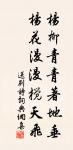 楊柳青青著地垂
楊花漫漫攪天飛
送別詩詞典詞集